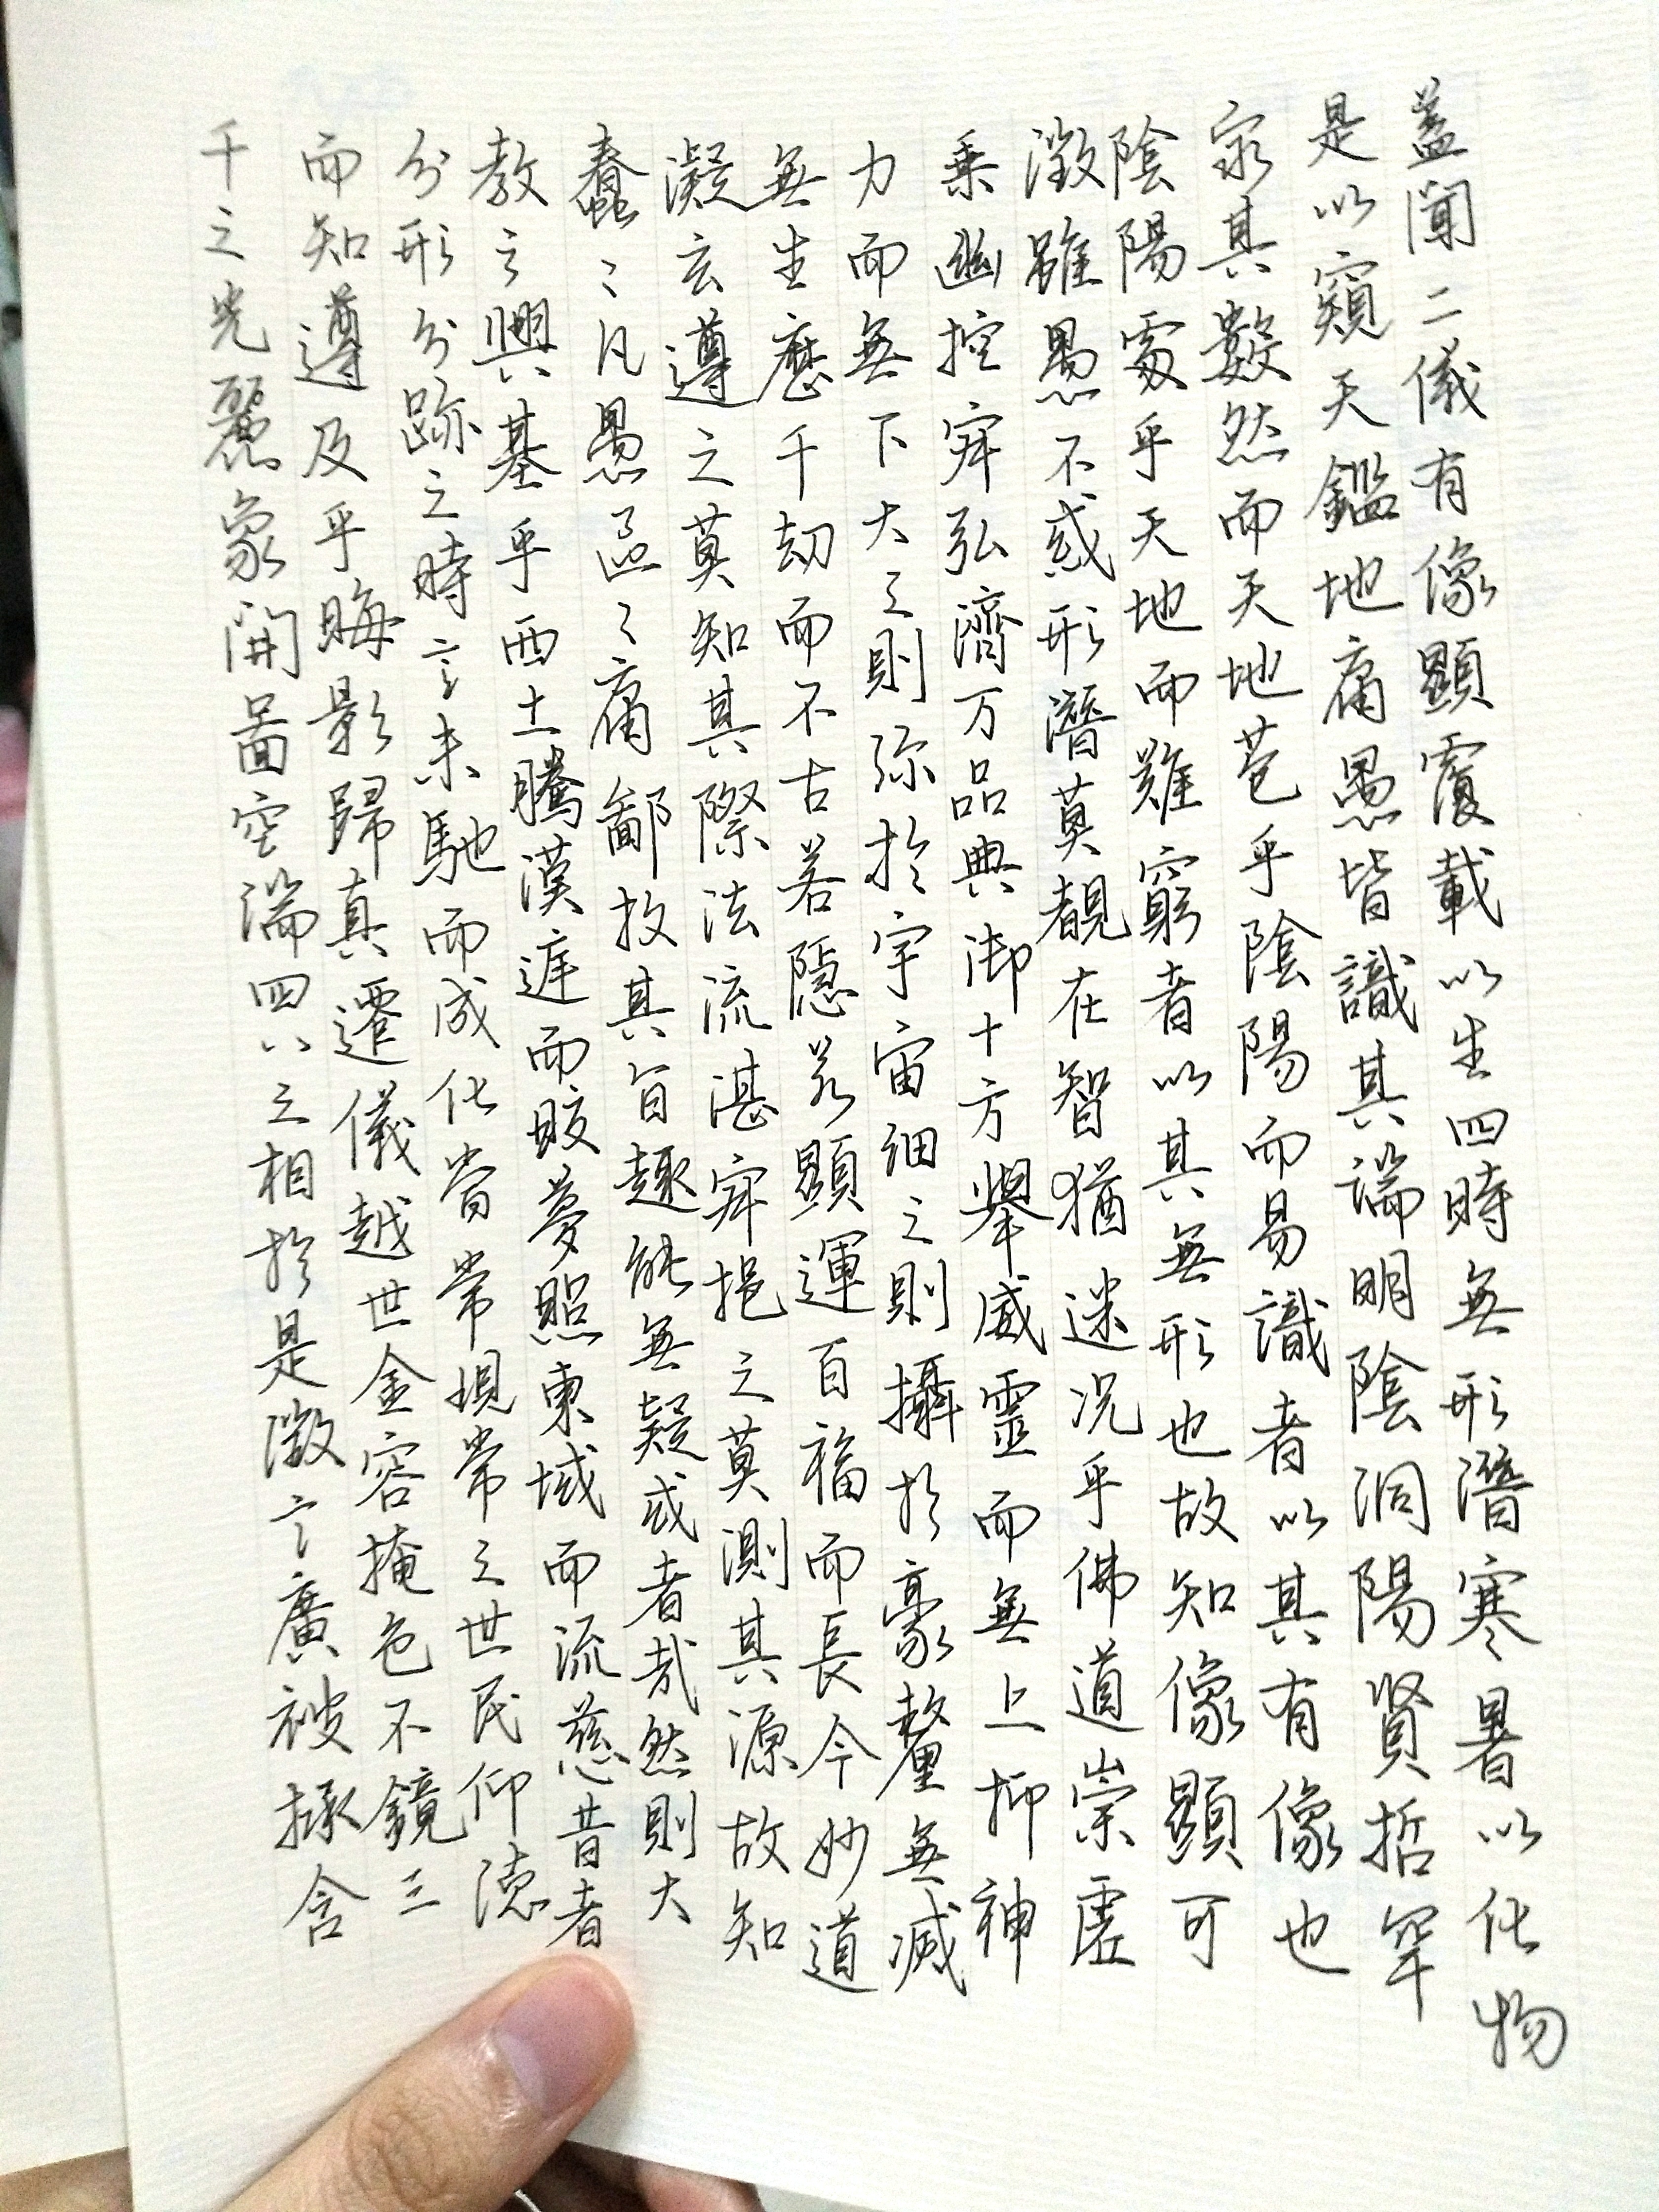 蓋聞二儀有像顯覆載以生四時無形潛寒暑以化物
是以窺天鑑地庸愚皆識其端明陰洞陽賢哲罕
窮其數然而天地苞乎陰陽而易識者以其有像也
陰陽處乎天地而難窮者以其無形也故知像顯可
徵雖愚不惑形潛莫覩在智猶迷況乎佛道崇虛
乘幽控寂弘濟万品典御十方舉威靈而無上抑神
力而無下大之則彌於宇宙細之則攝於豪釐無滅
無生歷千劫而不古若隱若顯運百福而長今妙道
凝玄遵之莫知其際法流湛寂挹之莫測其源故知
蠢〻凡愚區〻庸鄙投其旨趣能無疑或者哉然則大
教之興基乎西土騰漢庭而皎夢照東域而流慈昔者
分形分跡之時言未馳而成化當常現常之世民仰德
而知遵及乎晦影歸真遷儀越世金容掩色不鏡三
千之光麗象開圖空端四八之相於是微言廣被拯含